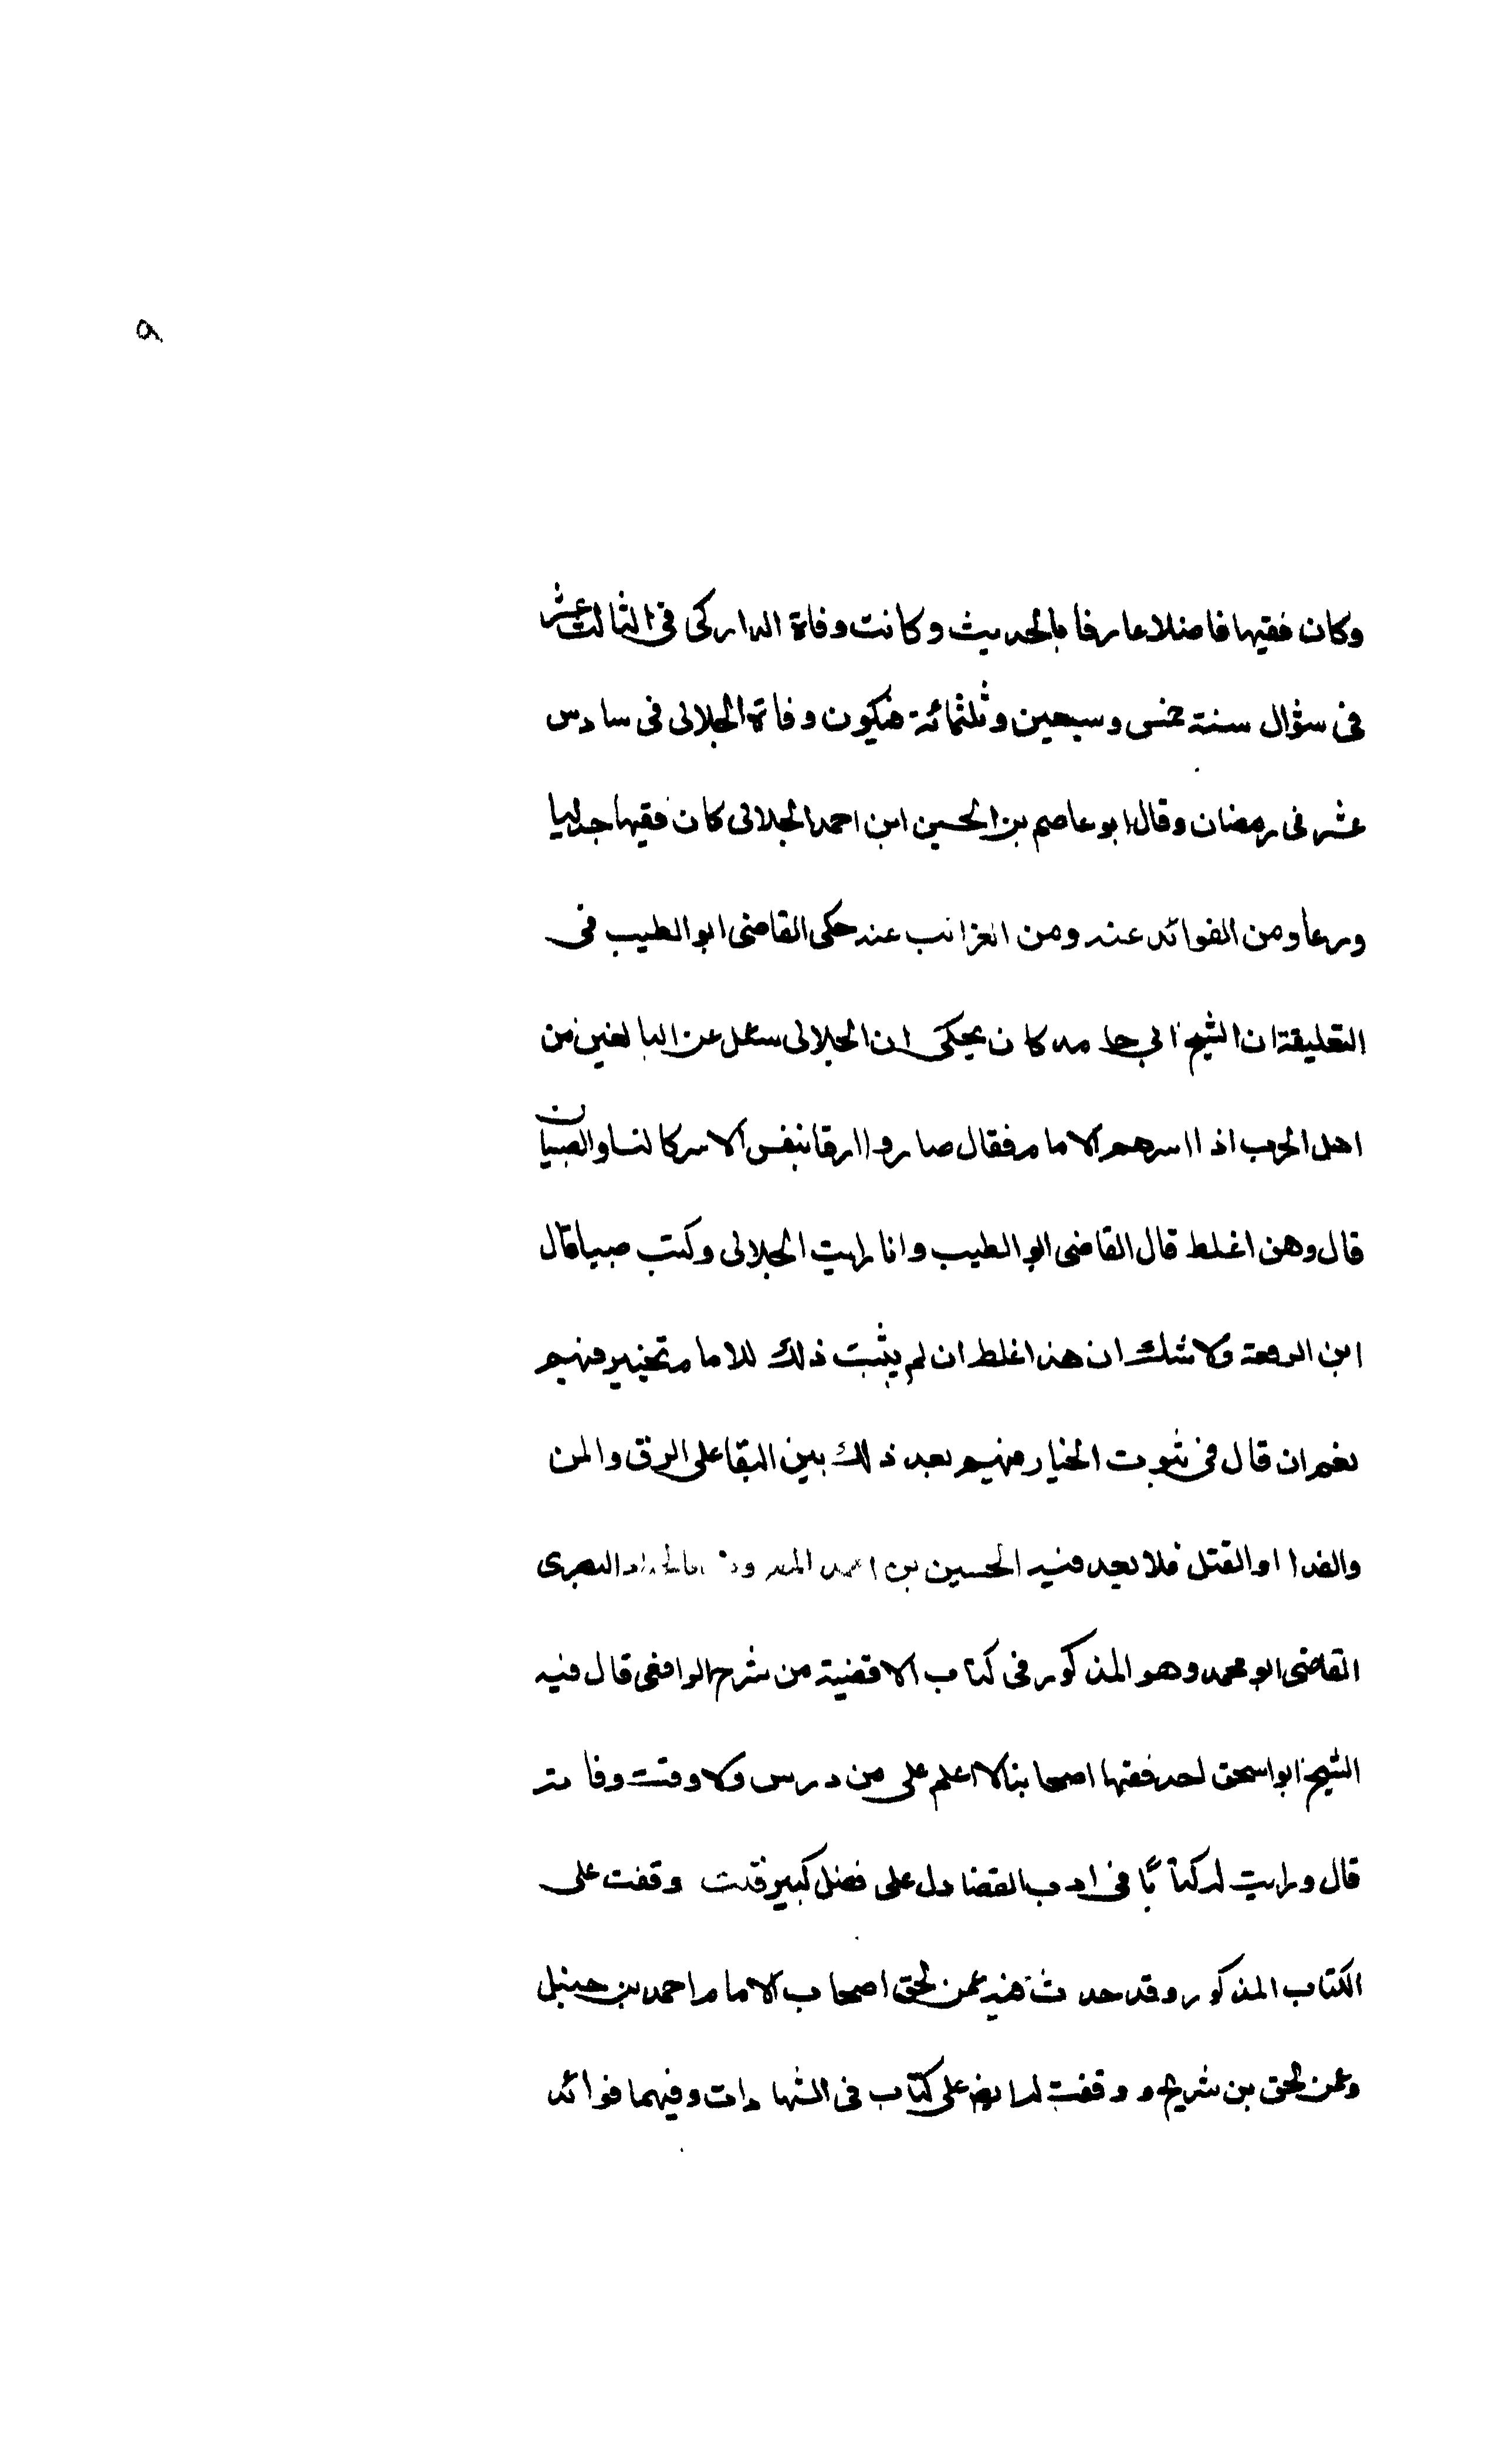 ٩
وكان فقيها فاضلا عارفا بالحديث وكانت وفاة الداركى فى الثالث عشر
فى سؤال سنة خمس وسبعين وثلثمائة فيكون وفاة الجلالى فى سادس
عشر فى رمضان وقال ابو عاصم بن الحسين ابن احمد الجلالى كان فقيها جدليا
ورعا ومن الفوائد عنه ومن الغرائب عنه حكى القاضى ابو الطيب فى
التعليقة ان الشيخ ابى حامد كان يحكى ان الجلالى سئل عن البالغين من
اهل الحرب اذا اسرهم الامام فقال صاروا ارقا بنفس الاسر كالنسا والصبيان
قال وهذا غلط قال القاضى ابو الطيب وانا رايت الجلالى وكنت صبيا قال
ابن الرفعة ولا شك ان هذا غلط ان لم يثبت ذلك للامام تخيير فيهم
نعم ان قال فى ثبوت الخيار فيهم بعد ذلك بين البقا على الرق والمن
والفدا او القتل فلا بعد فيه الحسين بن احمد المعروف بالحداد البصرى
القاضى ابو محمد وهو المذكور فى كتاب الاقضية من شرح الرافعى قال فيه
الشيخ ابو اسحق احد فقها اصحابنا لا اعلم على من درس ولا وقت وفاته
قال ورايت له كتابًا فى ادب القضا دل على فضل كبير قلت وقفت على
الكتاب المذكور وقد حدث فيه عمن لحق اصحاب الامام احمد بن حنبل
وعمن لحق بن شريح ووقفت له ايضا على كتاب فى الشهادات وفيهما فوائد